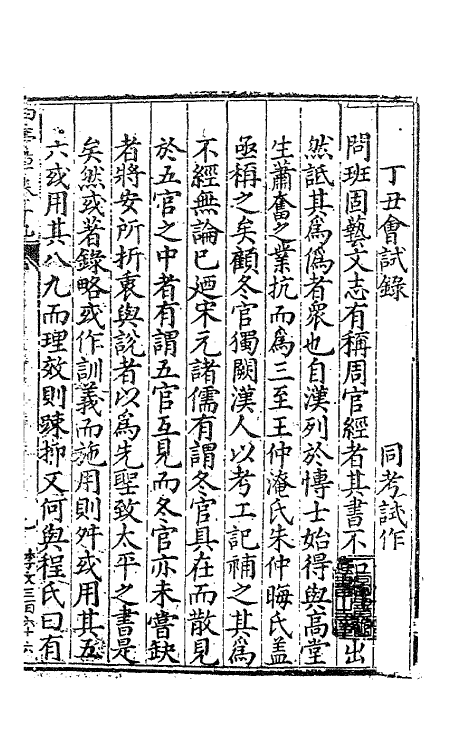 丁丑會試錄　同考試作
問班固藝文志有稱周官經者其書不出
然詆其為偽者眾也自漢列於博士始得與高堂
生蕭奮之業抗而為三至王仲淹氏朱仲晦氏蓋
亟稱之矣顧冬官獨闕漢人以考工記補之其為
不經無論已廼宋元諸儒有謂冬官具在而散見
於五官之中者有謂五官互見而冬官亦未嘗缺
者將安所折衷與說者以為先聖致太平之書是
矣然或著錄略或作訓義而施用則舛或用其五
六或用其八九而理效則踈抑又何與程氏曰有